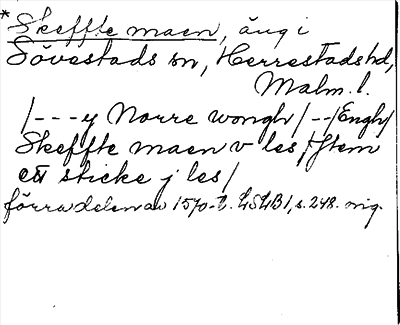 *Skeffte maen, äng i
Sövestads sn, Herrestads hd,
Malm. l.
/---y Norre wongh/--/Engh/
Skeffte maen v les/Jtem
ett sticke j les/
förra delen av 1570-t. LSLB1, s. 248. orig.